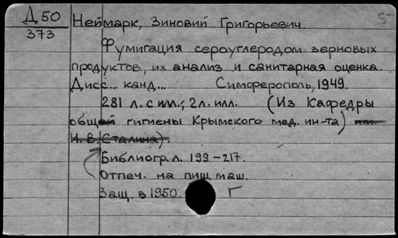 Д 50
373
Неймарк, Зиновий Григорьевич.
Фумигация сероуглеродом зерновых
продуктов, их анализ и санитарная оценка.
Дисс... канд... Симферополь, 1949.
281 л. с илл.; 2 л. илл. (Из Кафедры
общей гигиены Крымского мед. ин-та) им.
И. В. Сталина).
Библиогр. л. 199-217.
Отпеч. на пиш. маш.
Защ. в 1950. Г